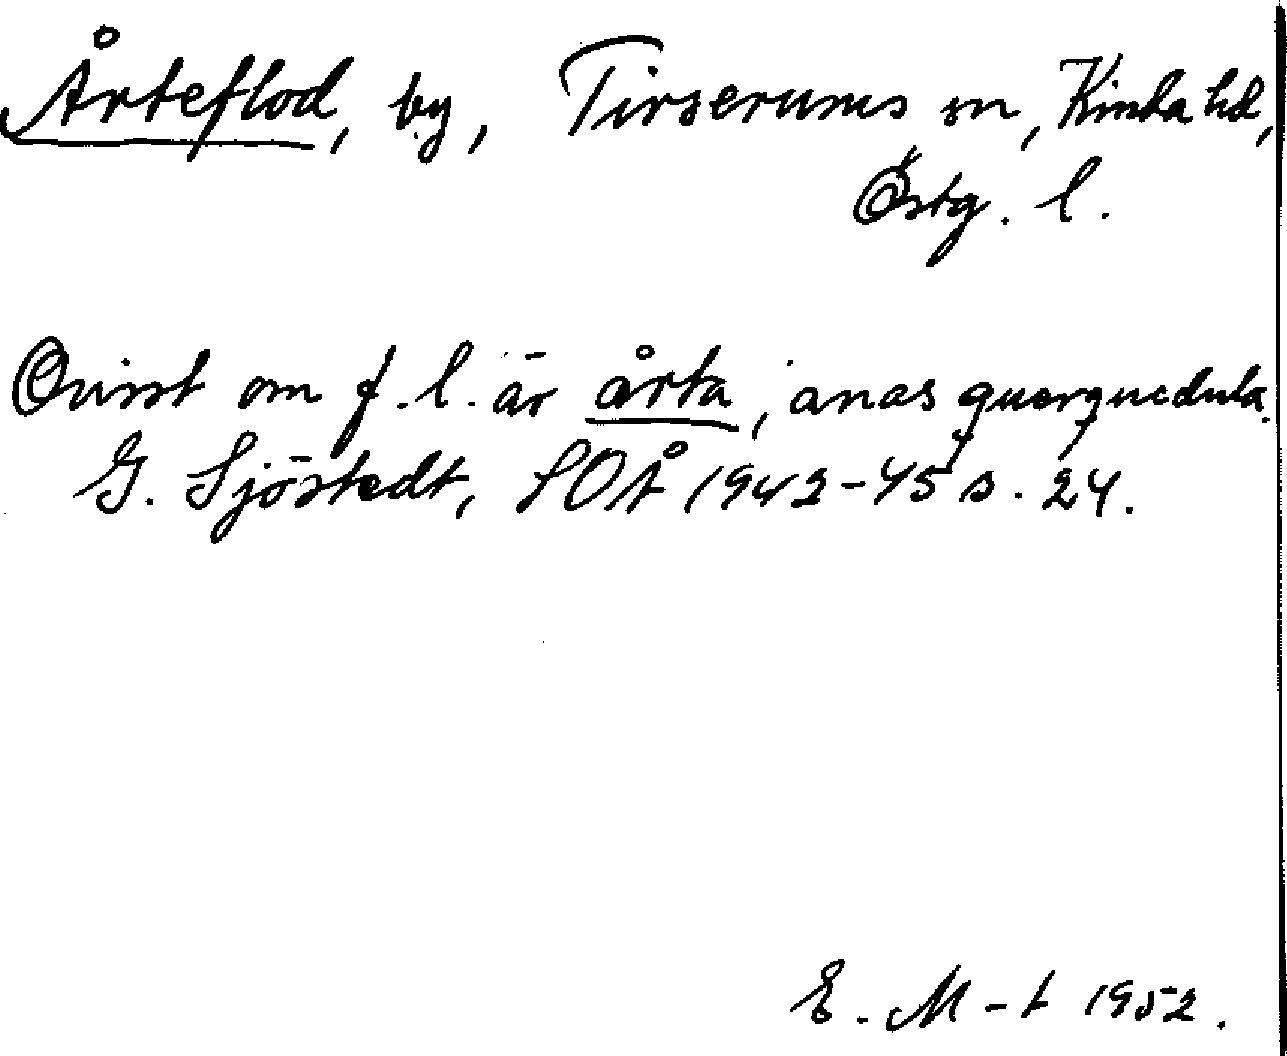 Årteflod, by, Tirserums sn, Kinda hd,
Östg. l.
Ovisst om f.l. är årta, anas querquedula.
G. Sjöstedt, SOÅ 1942-45 s. 24.
E. M-t 1952.